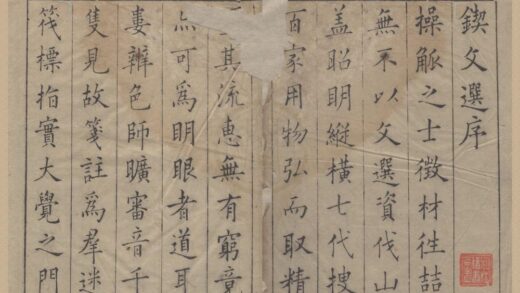 鍥文選序
操觚之士徵材徃喆
無不以文選資伐山
盖昭明縱橫七代搜
百家用物弘而取精
其流惠無有窮竟
亦可爲明眼者道耳
婁辨色師曠審音千
隻見故箋註爲羣迷
筏標指實大覺之門